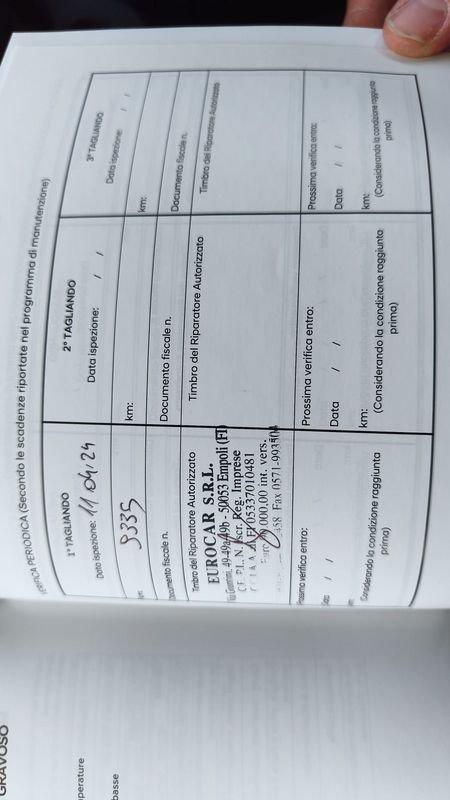 GRAVOSO
perature
basse
VERIFICA PERIODICA (Secondo le scadenze riportate nel programma di manutenzione)
1° TAGLIANDO
Data ispezione: 11/04/24
9335
Documento fiscale n.
Timbro del Riparatore Autorizzato
EUROCAR S.R.L.
49-49a/49b - 50053 Empoli (FI)
Iscr. Reg. Imprese
05337010481
.000,00 int. vers.
Fax 0571-993504
Prossima verifica entro:
Data / /
(Considerando la condizione raggiunta
prima)
2° TAGLIANDO
Data ispezione: / /
km:
Documento fiscale n.
Timbro del Riparatore Autorizzato
Prossima verifica entro:
Data / /
km:
(Considerando la condizione raggiunta
prima)
3° TAGLIANDO
Data ispezione: / /
km:
Documento fiscale n.
Timbro del Riparatore Autorizzato
Prossima verifica entro:
Data / /
km:
(Considerando la condizione raggiunta
prima)